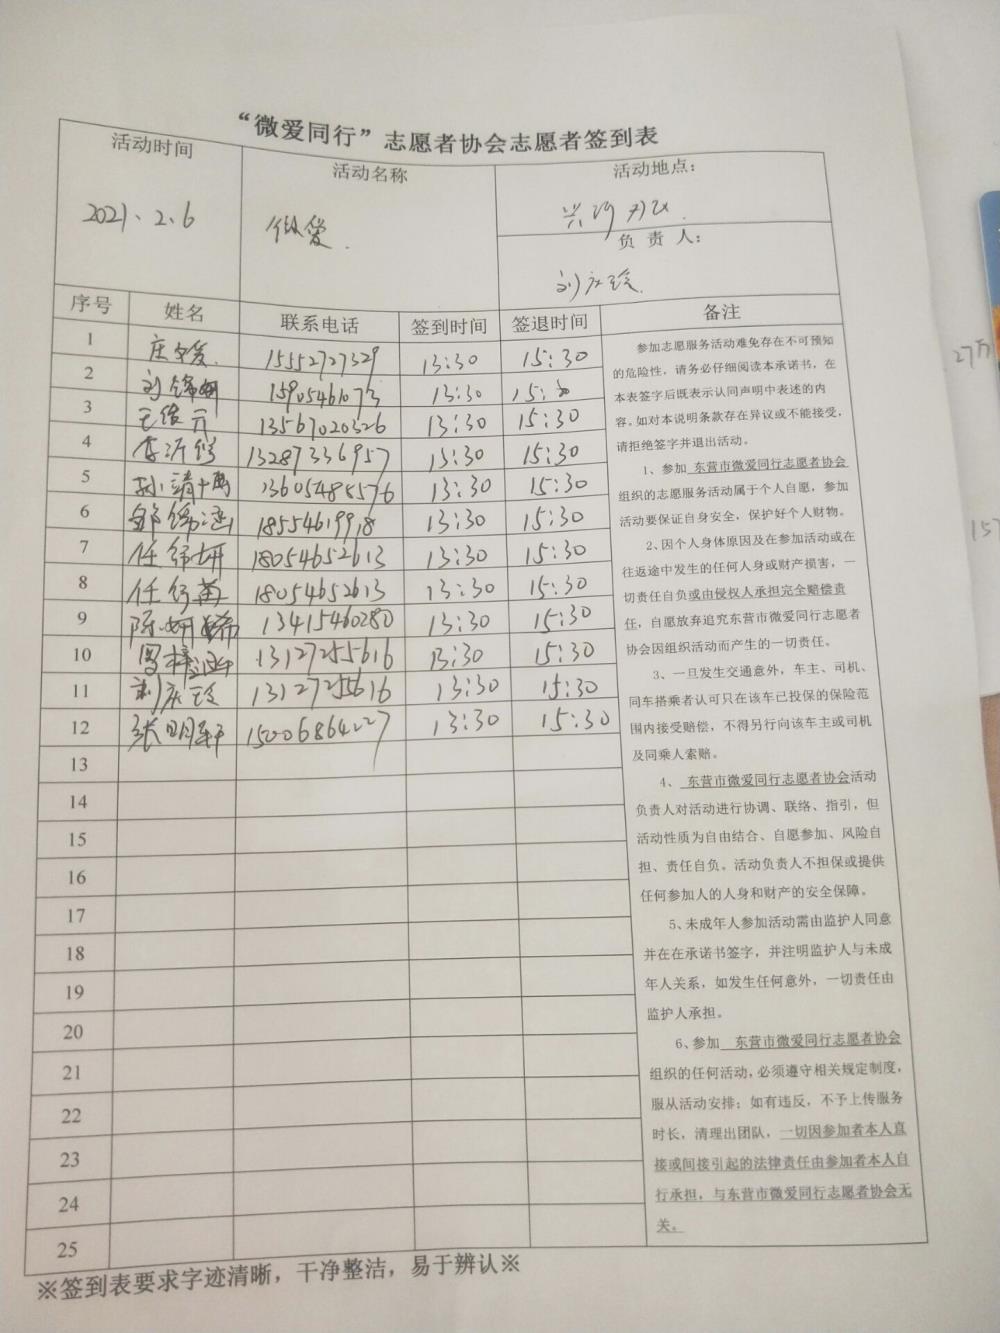 “微爱同行”志愿者协会志愿者签到表
活动时间
活动名称
活动地点：
2021、2、6
微爱.
负 责 人：
刘庆玲
序号 姓名 联系电话 签到时间 签退时间 备注
1 15552727329 13:30 15:30
2 刘锦妍 15905461073 13:30
3 13567020326 13:30 15:30
4 李沂 13287336957 13:30 15:30
5 孙靖 13605488576 13:30 15:30
6 邹锦涵 18554619918 13:30 15:30
7 任 妍 18054652613 13:30 15:30
8 任 18054652613 13:30 15:30
9 陈妍希 13415460280 13:30 15:30
10 周梓涵 13127255616 13:30 15:30
11 刘庆玲 13127255616 13:30 15:30
12 张明轩 15006864227 13:30 15:30
13
14
15
16
17
18
19
20
21
22
23
24
25
参加志愿服务活动难免存在不可预知
的危险性，请务必仔细阅读本承诺书，在
本表签字后既表示认同声明中表述的内
容。如对本说明条款存在异议或不能接受，
请拒绝签字并退出活动。
1、参加 东营市微爱同行志愿者协会
组织的志愿服务活动属于个人自愿，参加
活动要保证自身安全，保护好个人财物。
2、因个人身体原因及在参加活动或在
往返途中发生的任何人身或财产损害，一
切责任自负或由侵权人承担完全赔偿责
任，自愿放弃追究东营市微爱同行志愿者
协会因组织活动而产生的一切责任。
3、一旦发生交通意外，车主、司机、
同车搭乘者认可只在该车已投保的保险范
围内接受赔偿，不得另行向该车主或司机
及同乘人索赔。
4、 东营市微爱同行志愿者协会活动
负责人对活动进行协调、联络、指引，但
活动性质为自由结合、自愿参加、风险自
担、责任自负。活动负责人不担保或提供
任何参加人的人身和财产的安全保障。
5、未成年人参加活动需由监护人同意
并在在承诺书签字，并注明监护人与未成
年人关系，如发生任何意外，一切责任由
监护人承担。
6、参加 东营市微爱同行志愿者协会
组织的任何活动，必须遵守相关规定制度，
服从活动安排；如有违反，不予上传服务
时长，清理出团队，一切因参加者本人直
接或间接引起的法律责任由参加者本人自
行承担，与东营市微爱同行志愿者协会无
关。
※签到表要求字迹清晰，干净整洁，易于辨认※